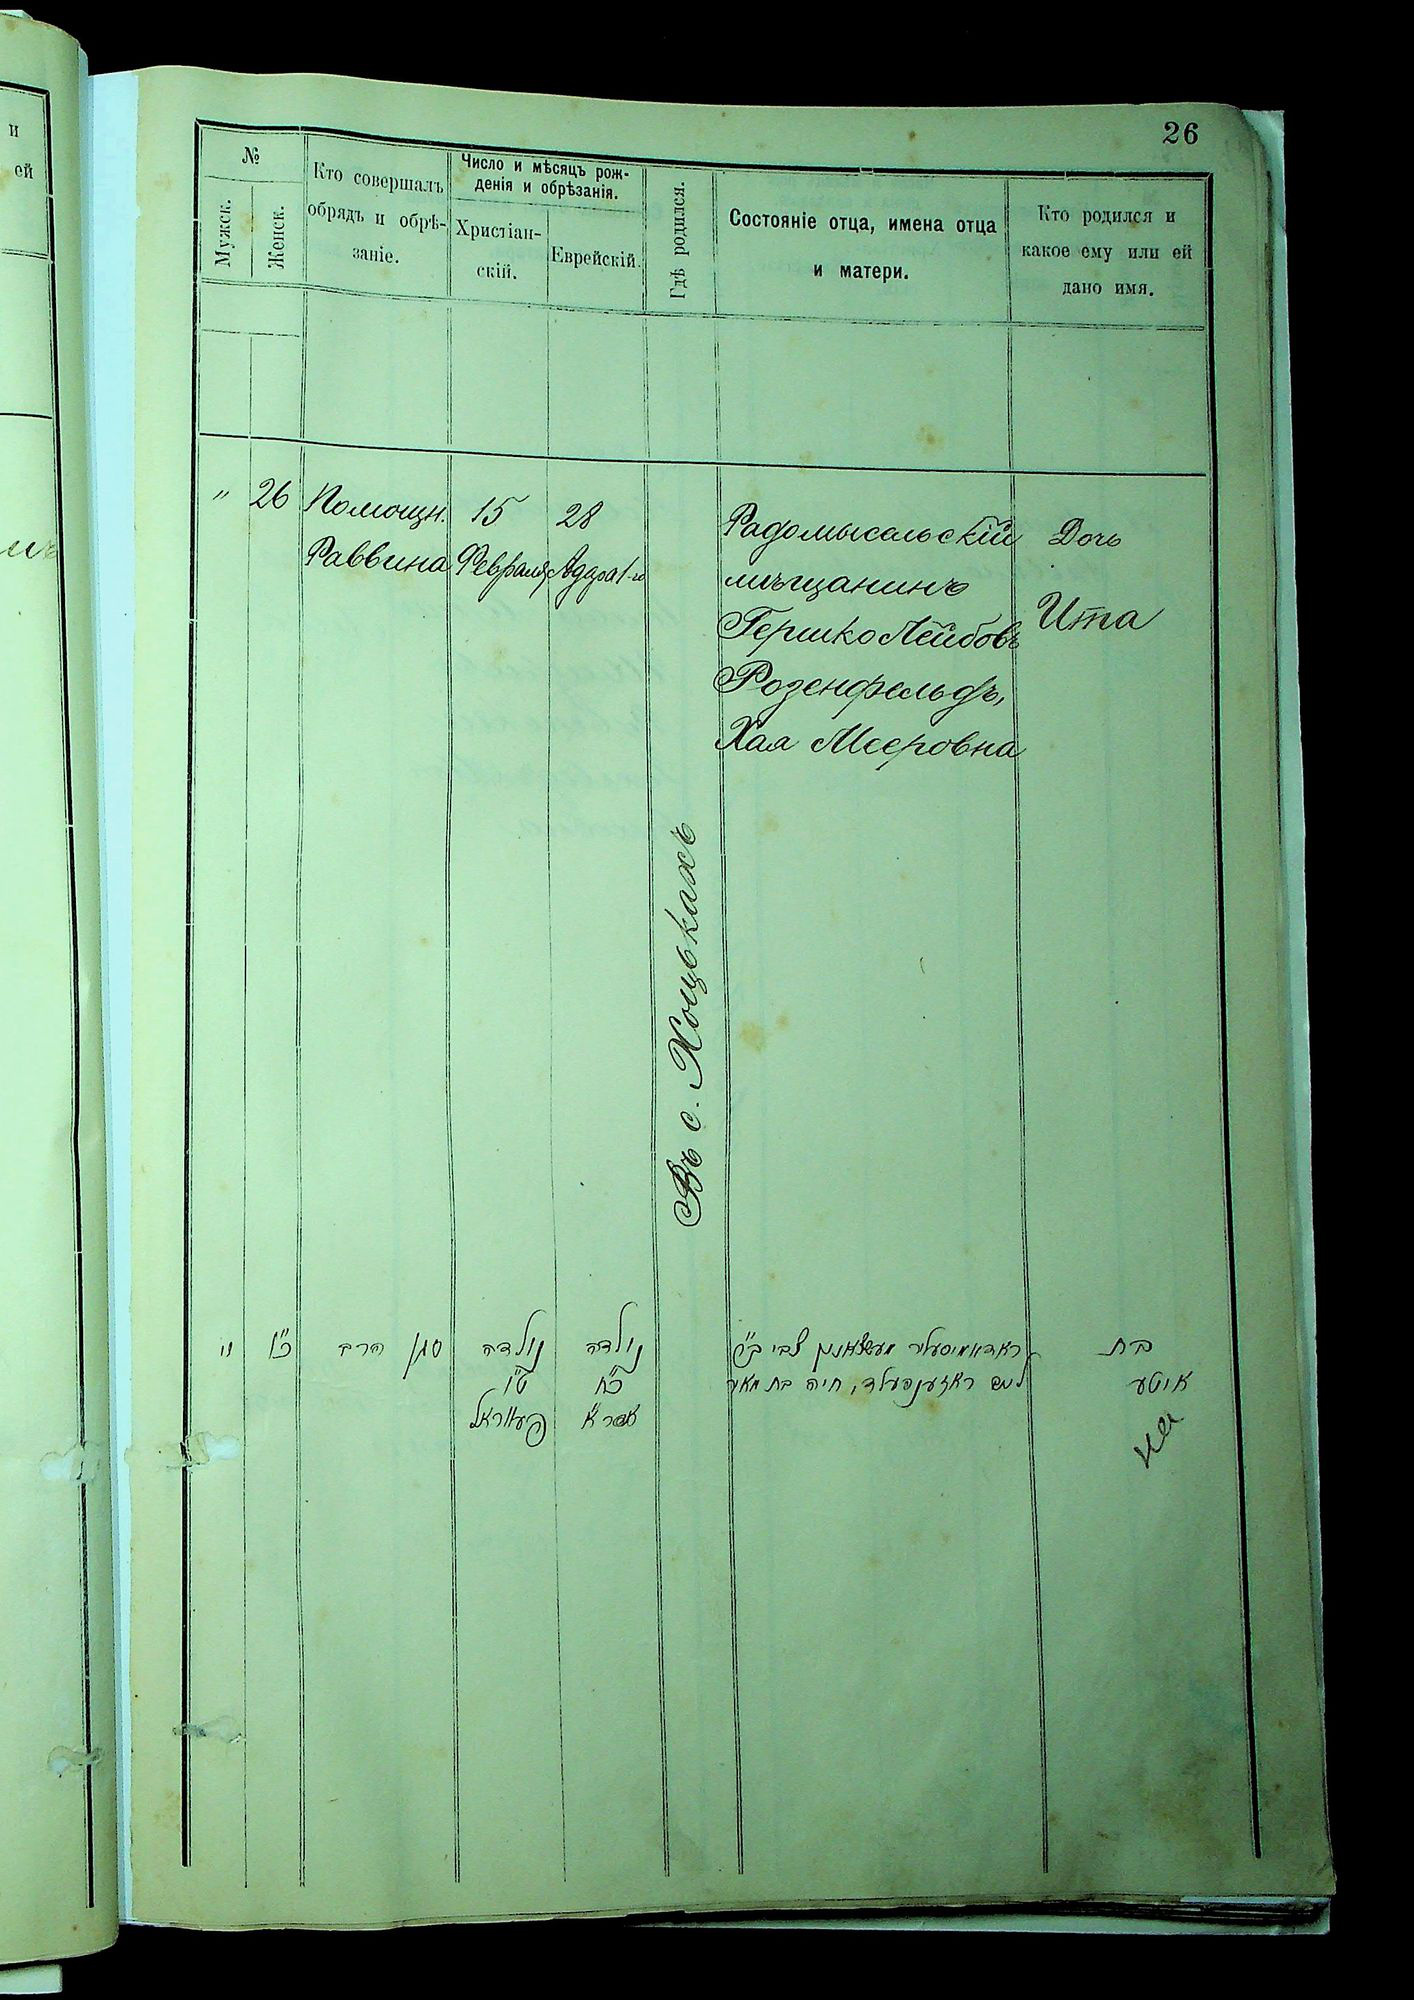 26
и
ей
№
Мужск.
Женск.
Кто совершалъ
обрядъ и обрѣ-
заніе.
Число и мѣсяцъ рож-
денія и обрѣзанія.
Христіан-
скій.
Еврейскій.
Гдѣ родился.
Состояніе отца, имена отца
и матери.
Кто родился и
какое ему или ей
дано имя.
" 26
Помощн.
Раввина
15
Февраля
28
Адара 1-го
Въ с. Хоцькахъ
Радомысельскій
мѣщанинъ
Гершко Лейбовъ
Розенфельдъ,
Хая Мееровна
Дочь
Ита
"
כ"ו
סגן הרב
נולדה
ט"ו
פעווראל
נולדה
כ"ח
אדר א'
ראדאמיסעלער מעשצאנין צבי ב"ר
ליב ראזענפעלד, חיה בת מאיר
בת
איטע